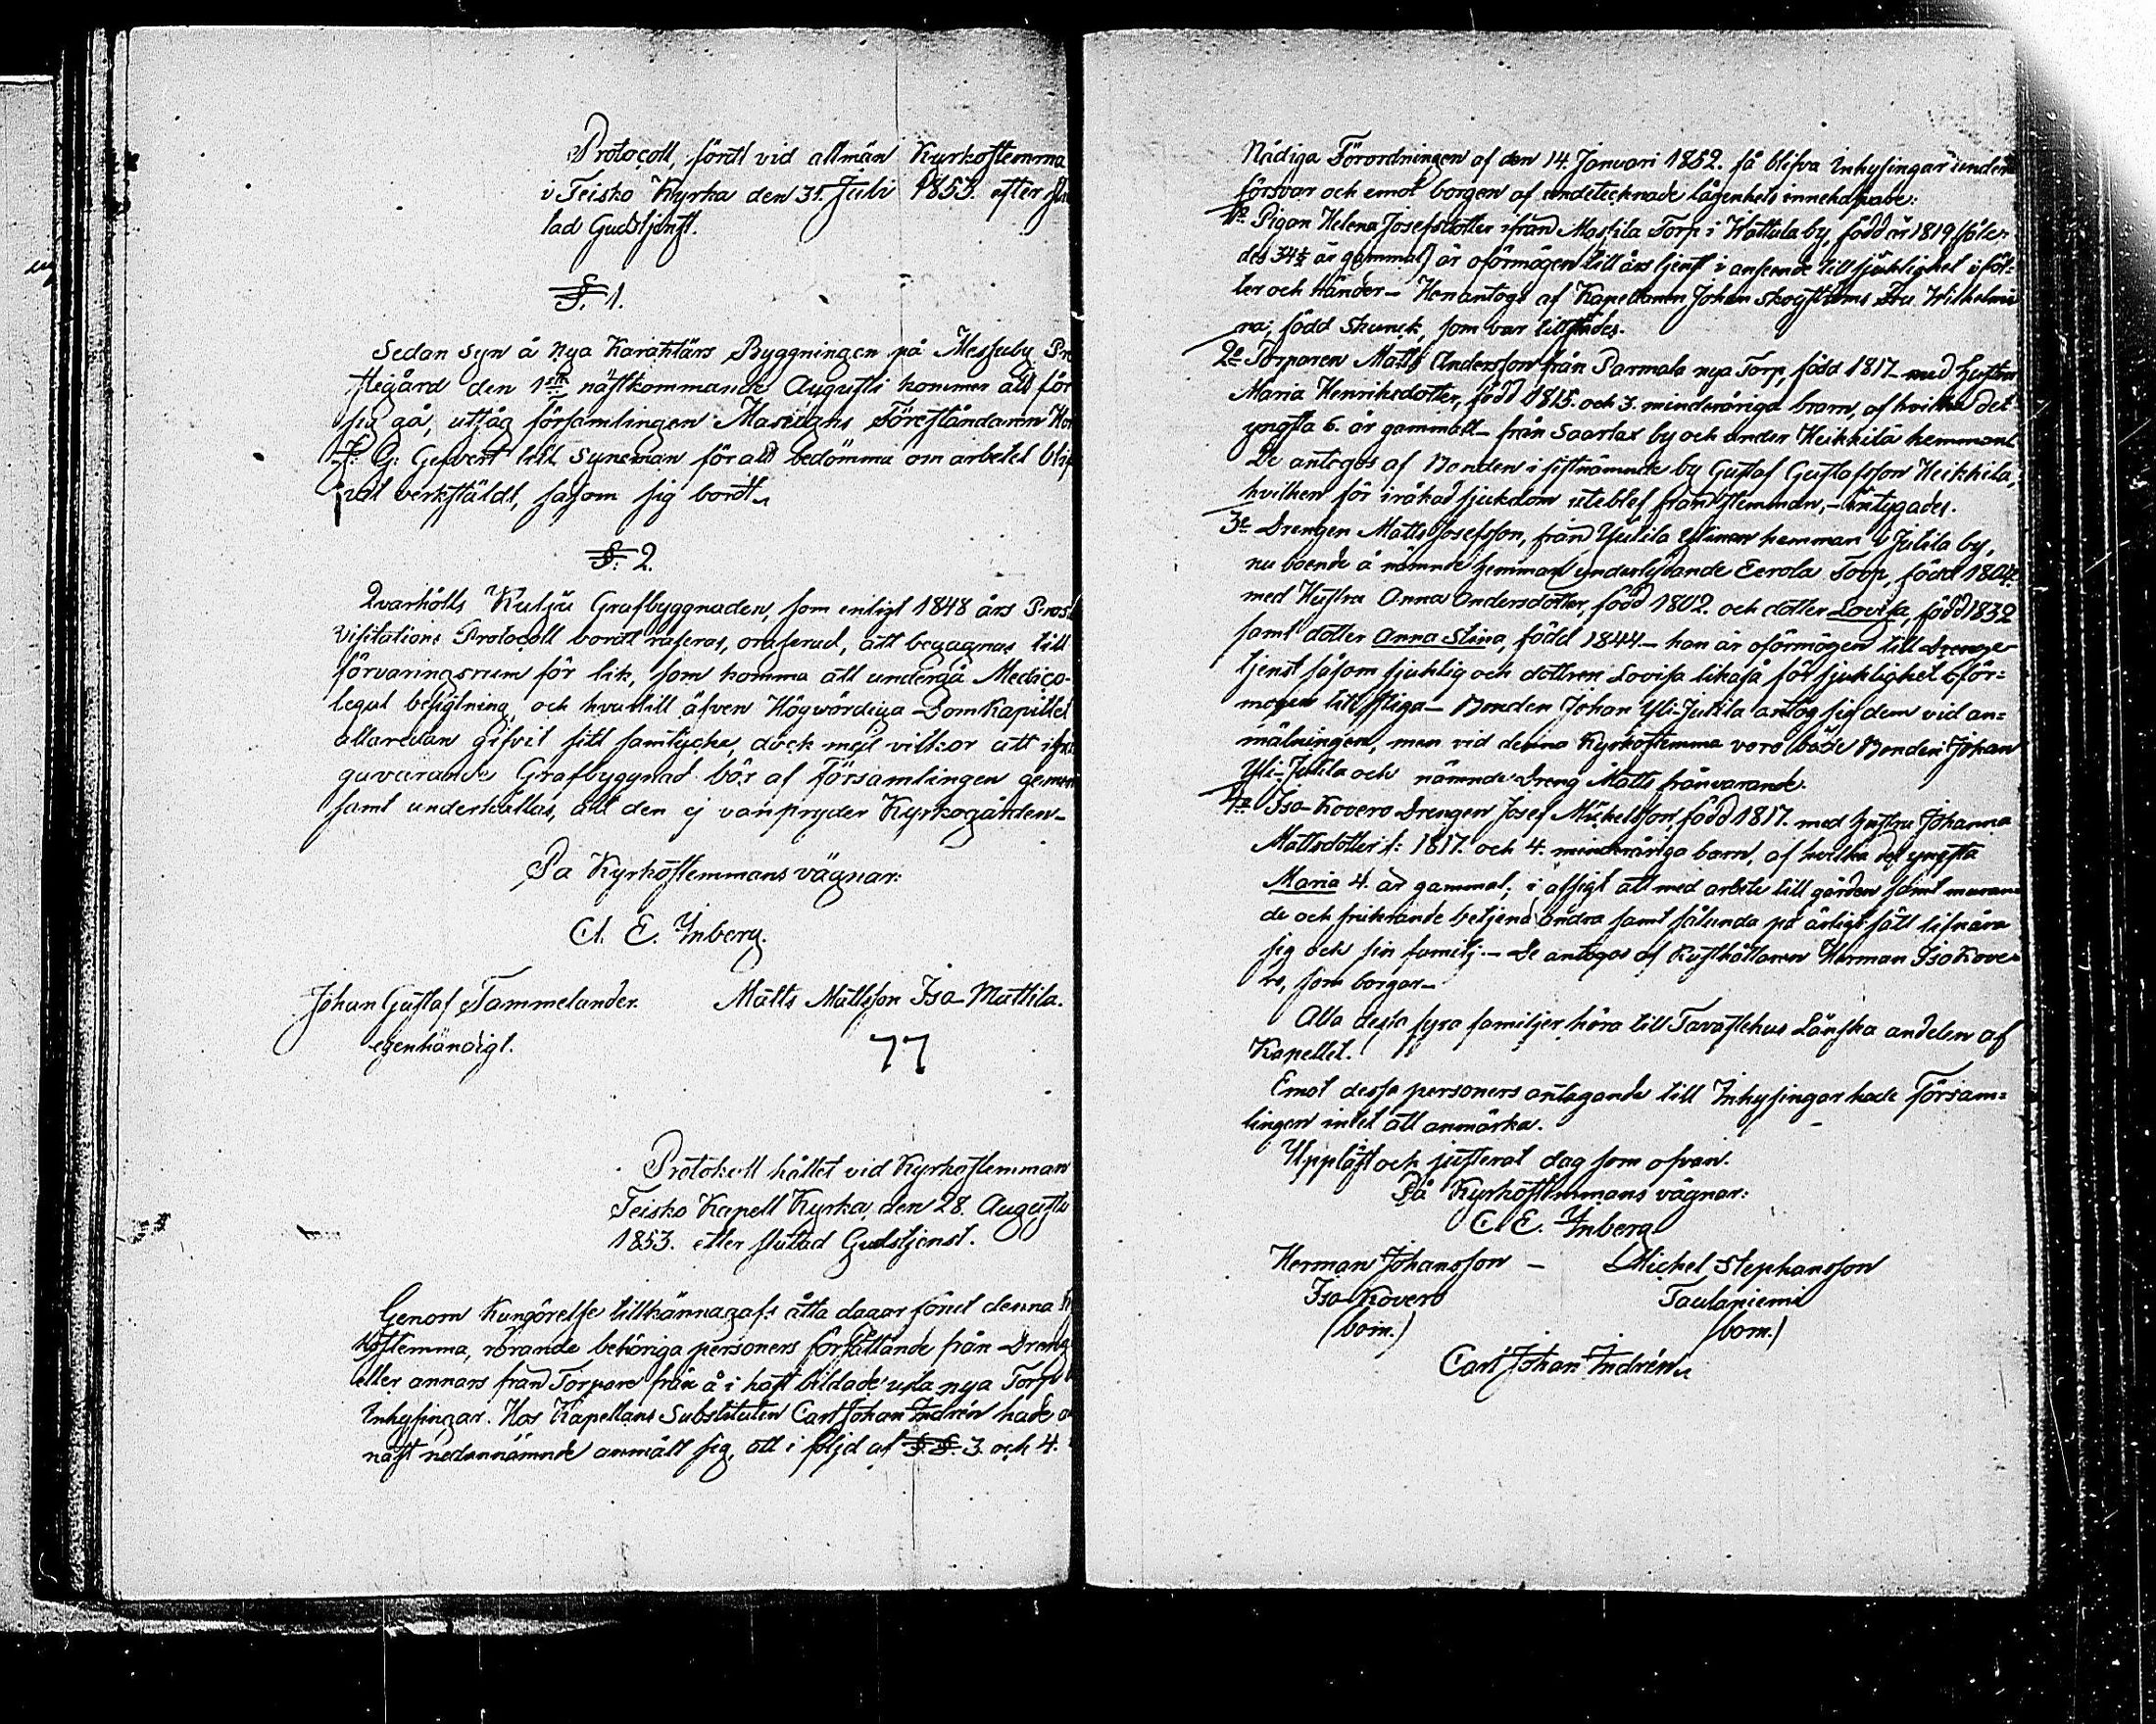 Protocoll, fördt vid allmän Kyrkostemma
i Teisko Kyrka den 31. Juli 1853. efter slu
tad Gudstjenst.
§. 1.
Sedan syn å nya Karaktärs Byggningen på Messuby Pre
stegård den 1sta nästkommande Augusti kommer att för
sig gå, utsåg församlingen Masugns Föreståndaren Her
F. G. Gefvert till syneman för att bedömma om arbetet blif
vit verkstäldt, såsom sig bordt.
§. 2.
Qvarhölls Kulju Grafbyggnaden, som enligt 1848 års Prost
Visitations Protocoll bordt raseras, oraserad, att begagnas till
förvaringsrum för lik, som komma att undergå Medico-
legal besigtning, och hvartill äfven Högvördiga DomKapitlet
allaredan gifvit sitt samtycke, dock med vilkor att ifrå
gavarande Grafbyggnad bör af Församlingen
samt underhållas, att den ej vanpryder Kyrkogården.
På Kyrkostemmans vägnar:
Cl. E. Ynberg.
Johan Gustaf Tammelander. Matts Mattsson Iso-Mattila.
egenhändigt. 77
Protokoll hållet vid Kyrkostemman
Teisko Kapell Kyrka, den 28. Augusti
1853. efter slutad Gudstjenst.
Genom Kungörelse tillkännagafs åtta dagar förut denna
kostemma, rörande behöriga personers författande från Dreng
eller annars från Torpare från å i häst bildade nya Torp
Inhysingar. Hos Kapellans Substituten Carl Johan Indrén hade
näst nedannämnde anmält sig, att i följd af §.§. 3. och 4.
Nådiga Förordningen af den 14. Januari 1852. få blifva Inhysingar under
försvar och emot borgen af undertecknade lägenhets innehafvare:
1o Pigan Helena Josefsdotter ifrån Mastila Torp i Hattula by, född år 1819 (såle-
des 34½ år gammal) är oförmögen till års tjenst i anseende till sjuklighet i föt=
ter och händer – Hon antogs af Kapellanen Johan Skogströms Fru Wilhelmi
na, född Skunck, som var tillstädes.
2o Torparen Matts Andersson från Parmala nya Torp, född 1817. med hustru
Maria Henriksdotter, född 1815. och 3. minderåriga barn, af hvilka det
yngsta 6. år gammalt – från Saarlax by och under Heikkilä hemman.
De antogos af Bonden i sistnämnde by Gustaf Gustafsson Heikkilä,
hvilken för iråkad sjukdom uteblef från stemman, – intygades.
3o Drengen Matts Josefsson, från Jutila Ylinen hemman i Jutila by,
nu boende å nämnde hemman underlydande Eerola Torp, född 1804.
med Hustru Anna Andersdotter, född 1802. och dotter Lovisa, född 1832
samt dotter Anna Stina, född 1844. – han är oförmögen till Drenge
tjenst såsom sjuklig och dottren Lovisa likaså för sjuklighet oför=
mögen till pliga – Bonden Johan Yli-Jutila antog sig dem vid an=
mälningen, men vid denna Kyrkostemma voro både Bonden Johan
Yli-Jutila och nämnde Dreng Matts frånvarande.
4o Iso-Kovero Drengen Josef Mickelsson, född 1817. med hustru Johanna
Mattsdotter f: 1817. och 4. minderåriga barn, af hvilka det yngsta
Maria 4. år gammal; i afsigt att med arbete till gården samt muran
de och betjena andra samt sålunda på ärligt sätt lifnära
sig och sin familj. – De antogos af Rusthållaren Herman Iso Kove=
ro, som borgar –
Alla dessa fyra familjer höra till Tavastehus Länska andelen af
Kapellet.
Emot dessa personers antagande till Inhysingar hade Försam=
lingen intet att anmärka.
Uppläst och justerat dag som ofvan.
På Kyrkostemmans vägnar:
C. E. Ynberg
Herman Johansson – Michel Stephansson
Iso-Kovero Taulaniemi
(bom.) (bom.)
Carl Johan Indrén